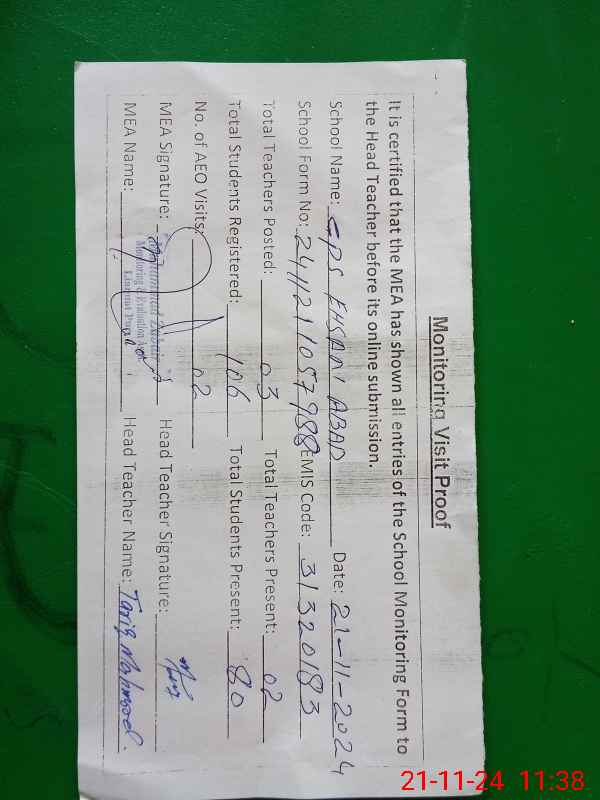 Monitoring Visit Proof
It is certified that the MEA has shown all entries of the School Monitoring Form to
the Head Teacher before its online submission.
School Name: GPS EHSANI ABAD Date: 21-11-2024
School Form No: 2411211057988 EMIS Code: 31320183
Total Teachers Posted: 03 Total Teachers Present: 02
Total Students Registered: 106 Total Students Present: 80
No. of AEO Visits: 02
MEA Signature: Head Teacher Signature:
Muhammad Zubair
Monitoring & Evaluation
MEA Name: Head Teacher Name: Tariq Mahmood.
21-11-24 11:38